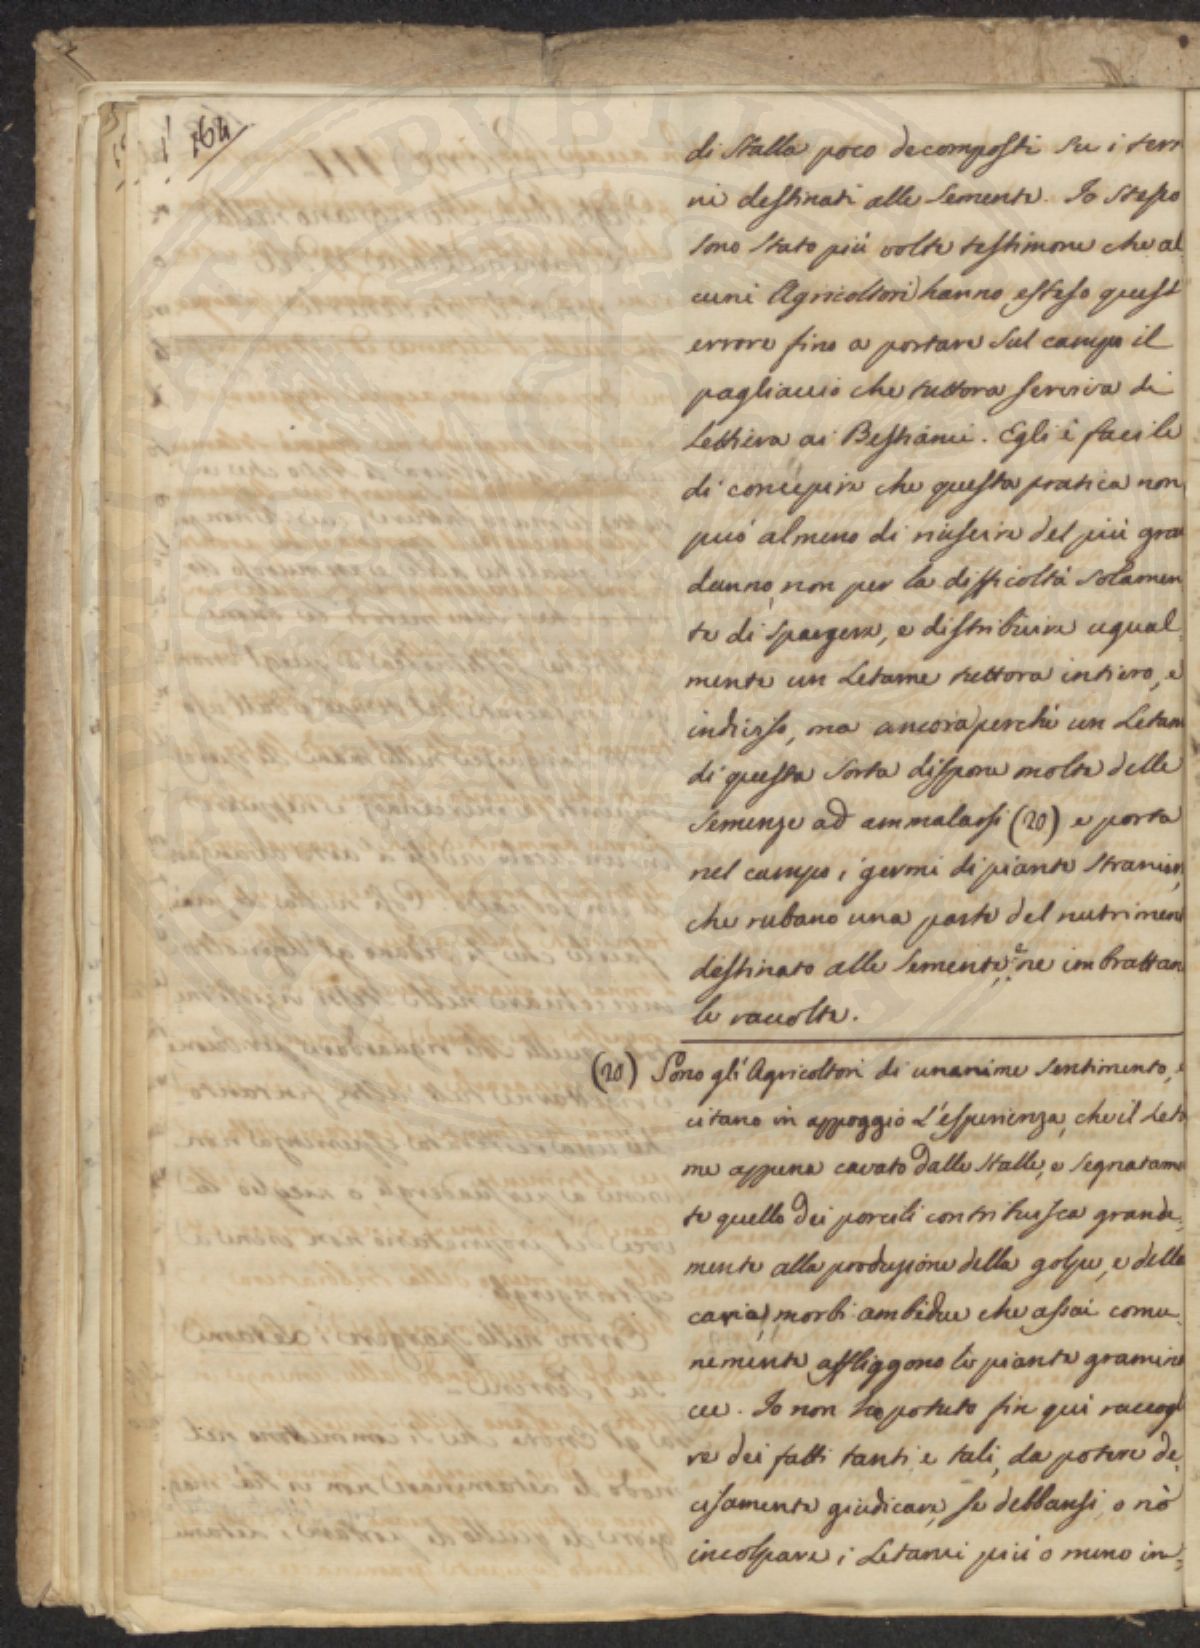 164
di Stalla poco decomposti su i terr
ni destinati alle Sementi. Io Stesso
sono Stato più volte testimone che al
cuni Agricoltori hanno esteso quest
errore fino a portare Sul campo il
pagliaccio che tuttora serviva di
Lettiera ai Bestiami. Egli è facile
di concepire che questa pratica non
può almeno di riuscire del più gra
danno, non per la difficoltà Solamen
te di Spargere, e distribuire ugual
mente un Letame tuttora intiero, e
indiviso, ma ancora perchè un Letam
di questa Sorta dispone molte delle
Semenze ad ammalarsi (20) e porta
nel campo i germi di piante Stranier
che rubano una parte del nutrimen
destinato alle Sementi, e ne imbrattan
le raccolte.
(20) Sono gli Agricoltori di unanime Sentimento, e
citano in appoggio L'esperienza, che il Leta
me appena cavato dalle Stalle, e Segnatame
te quello dei porcili contribuisca grande
mente alla produzione della golpe, e della
caria, morbi ambedue che assai comu
nemente affliggono le piante gramina
cee. Io non ho potuto fin quì raccogl
re dei fatti tanti e tali, da potere de
cisamente giudicare, se debbansi, o nò
incolpare i Letami più o meno in